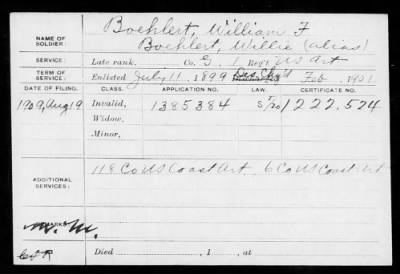 NAME OF SOLDIER: Boehlert, William F
Boehlert, Willie (alias)
SERVICE: Late rank, Co. G, 1 Reg't US Art
TERM OF SERVICE: Enlisted July 11, 1899 Feb , 1901
DATE OF FILING. CLASS. APPLICATION NO. CERTIFICATE NO.
1909, Aug 19 Invalid, 1385384 1222.524
Widow,
Minor,
ADDITIONAL SERVICES: 118 Co US Coast Art, 6 Co US Coast Art
REMARKS:
Died , 1 , at